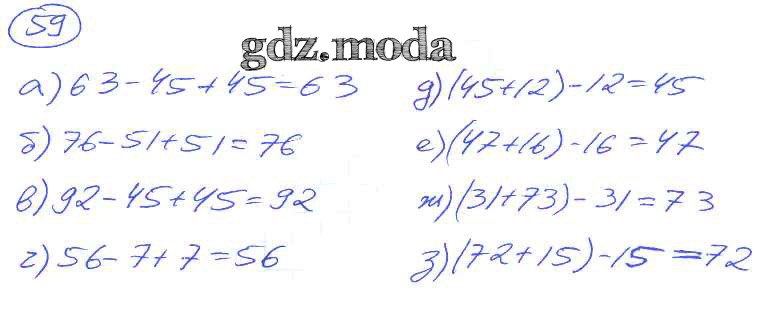 59
gdz.moda
а) 63-45+45=63
б) 76-51+51=76
в) 92-45+45=92
г) 56-7+7=56
д) (45+12)-12=45
е) (47+16)-16=47
ж) (31+73)-31=73
з) (72+15)-15=72